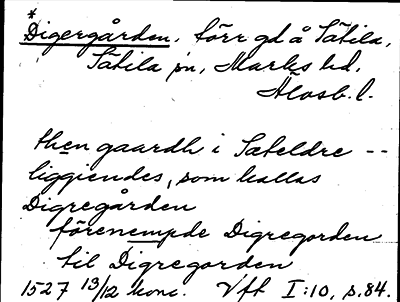 *
Digergården, förr gd å Sätila,
Sätila sn, Marks hd,
Älvsb. l.
then gaardh i Sateldre --
liggiendes, som kallas
Digregården
förenempde Digregorden
til Digregorden
1527 13/12 konc. Vfh I:10, s. 84.